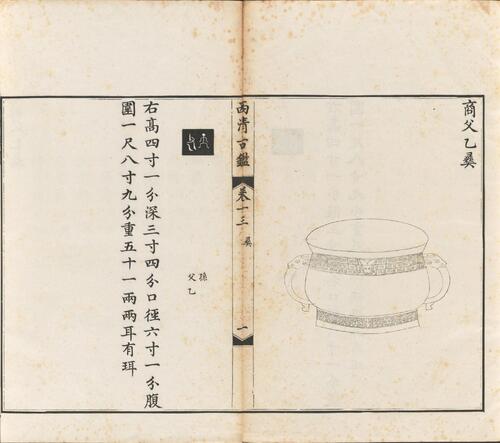 商父乙彝
西清古鑑
卷十三
彝
一
孫
父乙
右高四寸一分深三寸四分口徑六寸一分腹
圍一尺八寸九分重五十一兩兩耳有珥